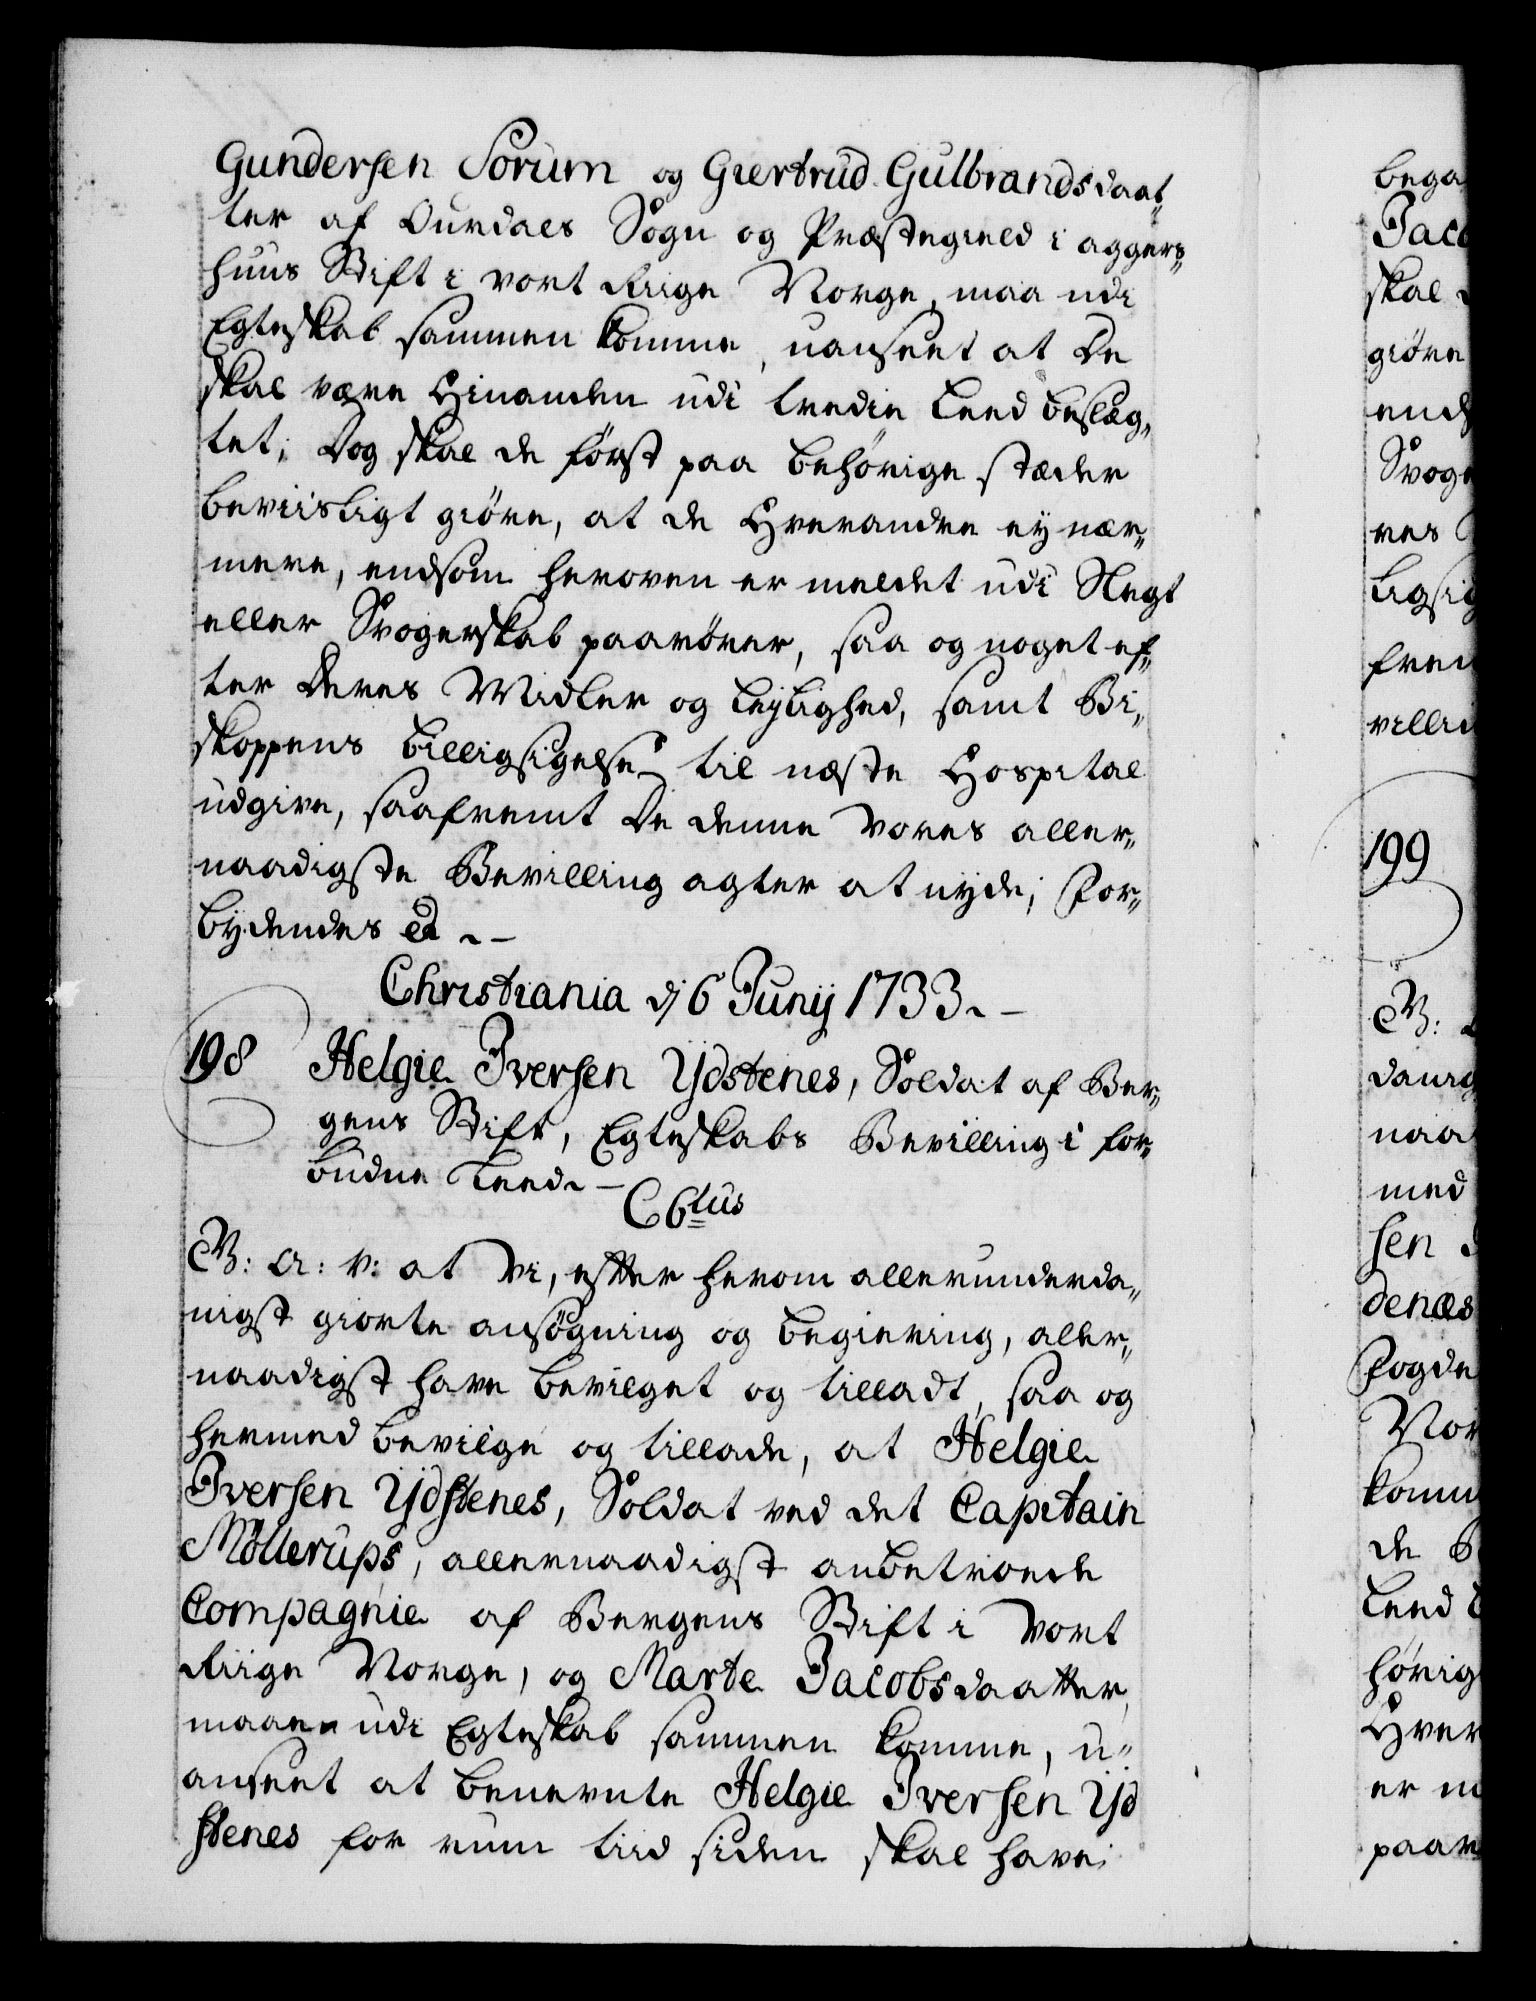 Gundersen Sorum og Giertrud Gulbrandsdaat„
ter af Ourdals Sogn og Præstegield i agger„
huus Stift i vort Riige Norge, maa udi
Egteskab sammen komme, uanseet at De
skal være Hinanden udi tredie Leed beslæg„
tet; Dog skal de først paa behørige stæder
beviisligt giöre, at de Hverandre ey nær„
mere, endsom heroven er meldet udi Slegt
eller Svogerskab paarører, saa og noget ef„
ter Deres Midler og Leylighed, samt Bi„
skoppens billigsigelse til næste Hospital
udgive, saafremt De denne Vores aller„
naadigste Bevilling agter at nyde; For„
bydendes &
Christiania dj 6 Junij 1733.
198 Helgie Iversen Ydstenes, Soldat af Ber„
gens Stift, Egteskabs Bevilling i for„
budne Leed.
C 6tus
G: A: V: at Vi, efter herom allerunderda„
nigst giorte ansøgning og begiering, aller„
naadigst have bevilget og tilladt, saa og
hermed bevilge og tillade, at Helgie
Iversen Ydstenes, Soldat ved det Capitain
Möllerups, allernaadigst anbetroede
Compagnie af Bergens Stift i Vort
Riige Norge, og Marte Jacobsdaatter,
maae udi Egteskab sammen komme, u„
anseet at benevnte Helgie Iversen Yd
stenes for rum tiid siden skal have
bega
Jaco
skal
giöre
ends
Svoge
res
ligsig
frem
villin
199
G:
danig
naa
med
sen
denæs
Fogde
Nor
komm
de
Leed
hørig
Hver
er m
paar